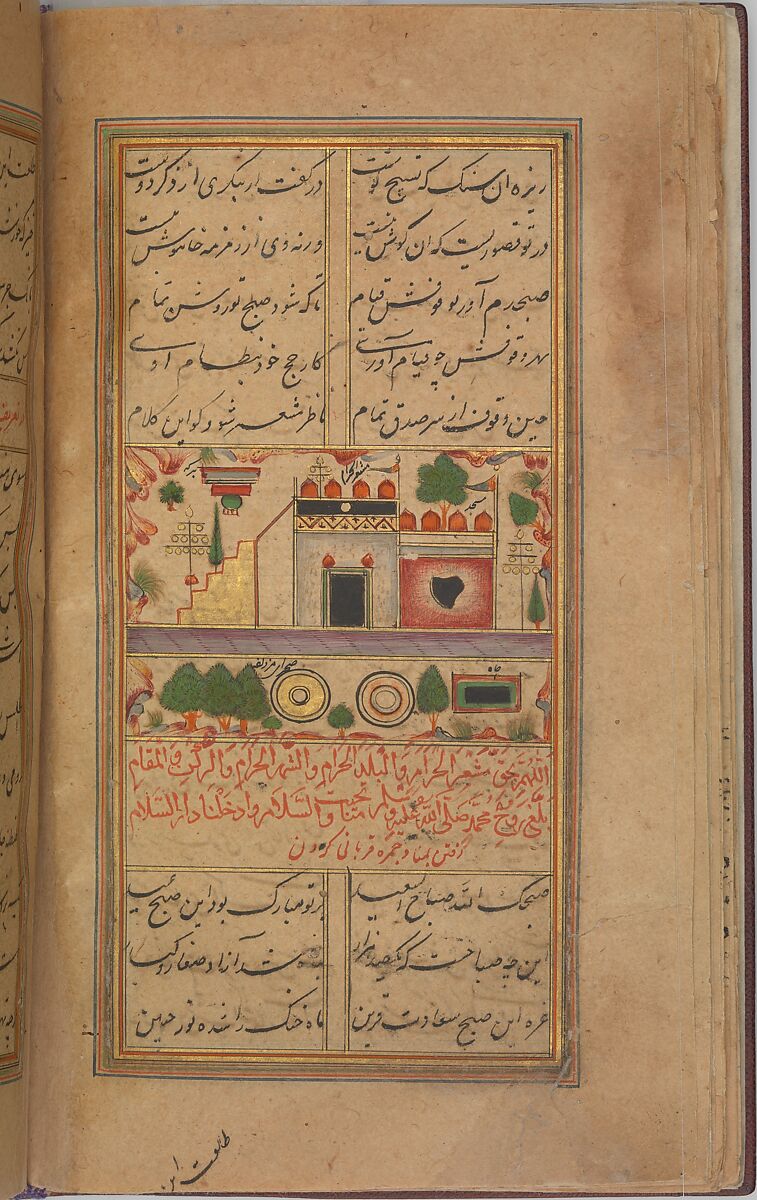 ریزه ان سنک که تسبیح کوست در کفت ار بنکری از ذکر دوست
در تو قصوریست که ان کوش نیست ورنه وی از زمزمه خاموش نیست
صبحدم آور تو وقوفش قیام تا که شود صبح تو روشن تمام
بهر وقوفش چو قیام آوری کار حج خود بنظام اوری
حین وقوف از سر صدق تمام ناظر مشعر شو و کو این کلام
مشعر الحرام
مسجد
صحرای مزدلفه
چاه
اللهم بحق مشعر الحرام والبلد الحرام والشهر الحرام والركن والمقام
بلغ روح محمد صلى الله عليه وسلم منا تحية والسلام وادخلنا دار السلام
رفتن بمنا و جمره قربانی کردن
صبحک الله صباح السعید بر تو مبارک بود این صبح عید
این چه صباحست که یکصد هزار بنده شد آزاد صغار و کبار
غره این صبح سعادت قرین ماه خنک را شده نور جبین
طالعت این